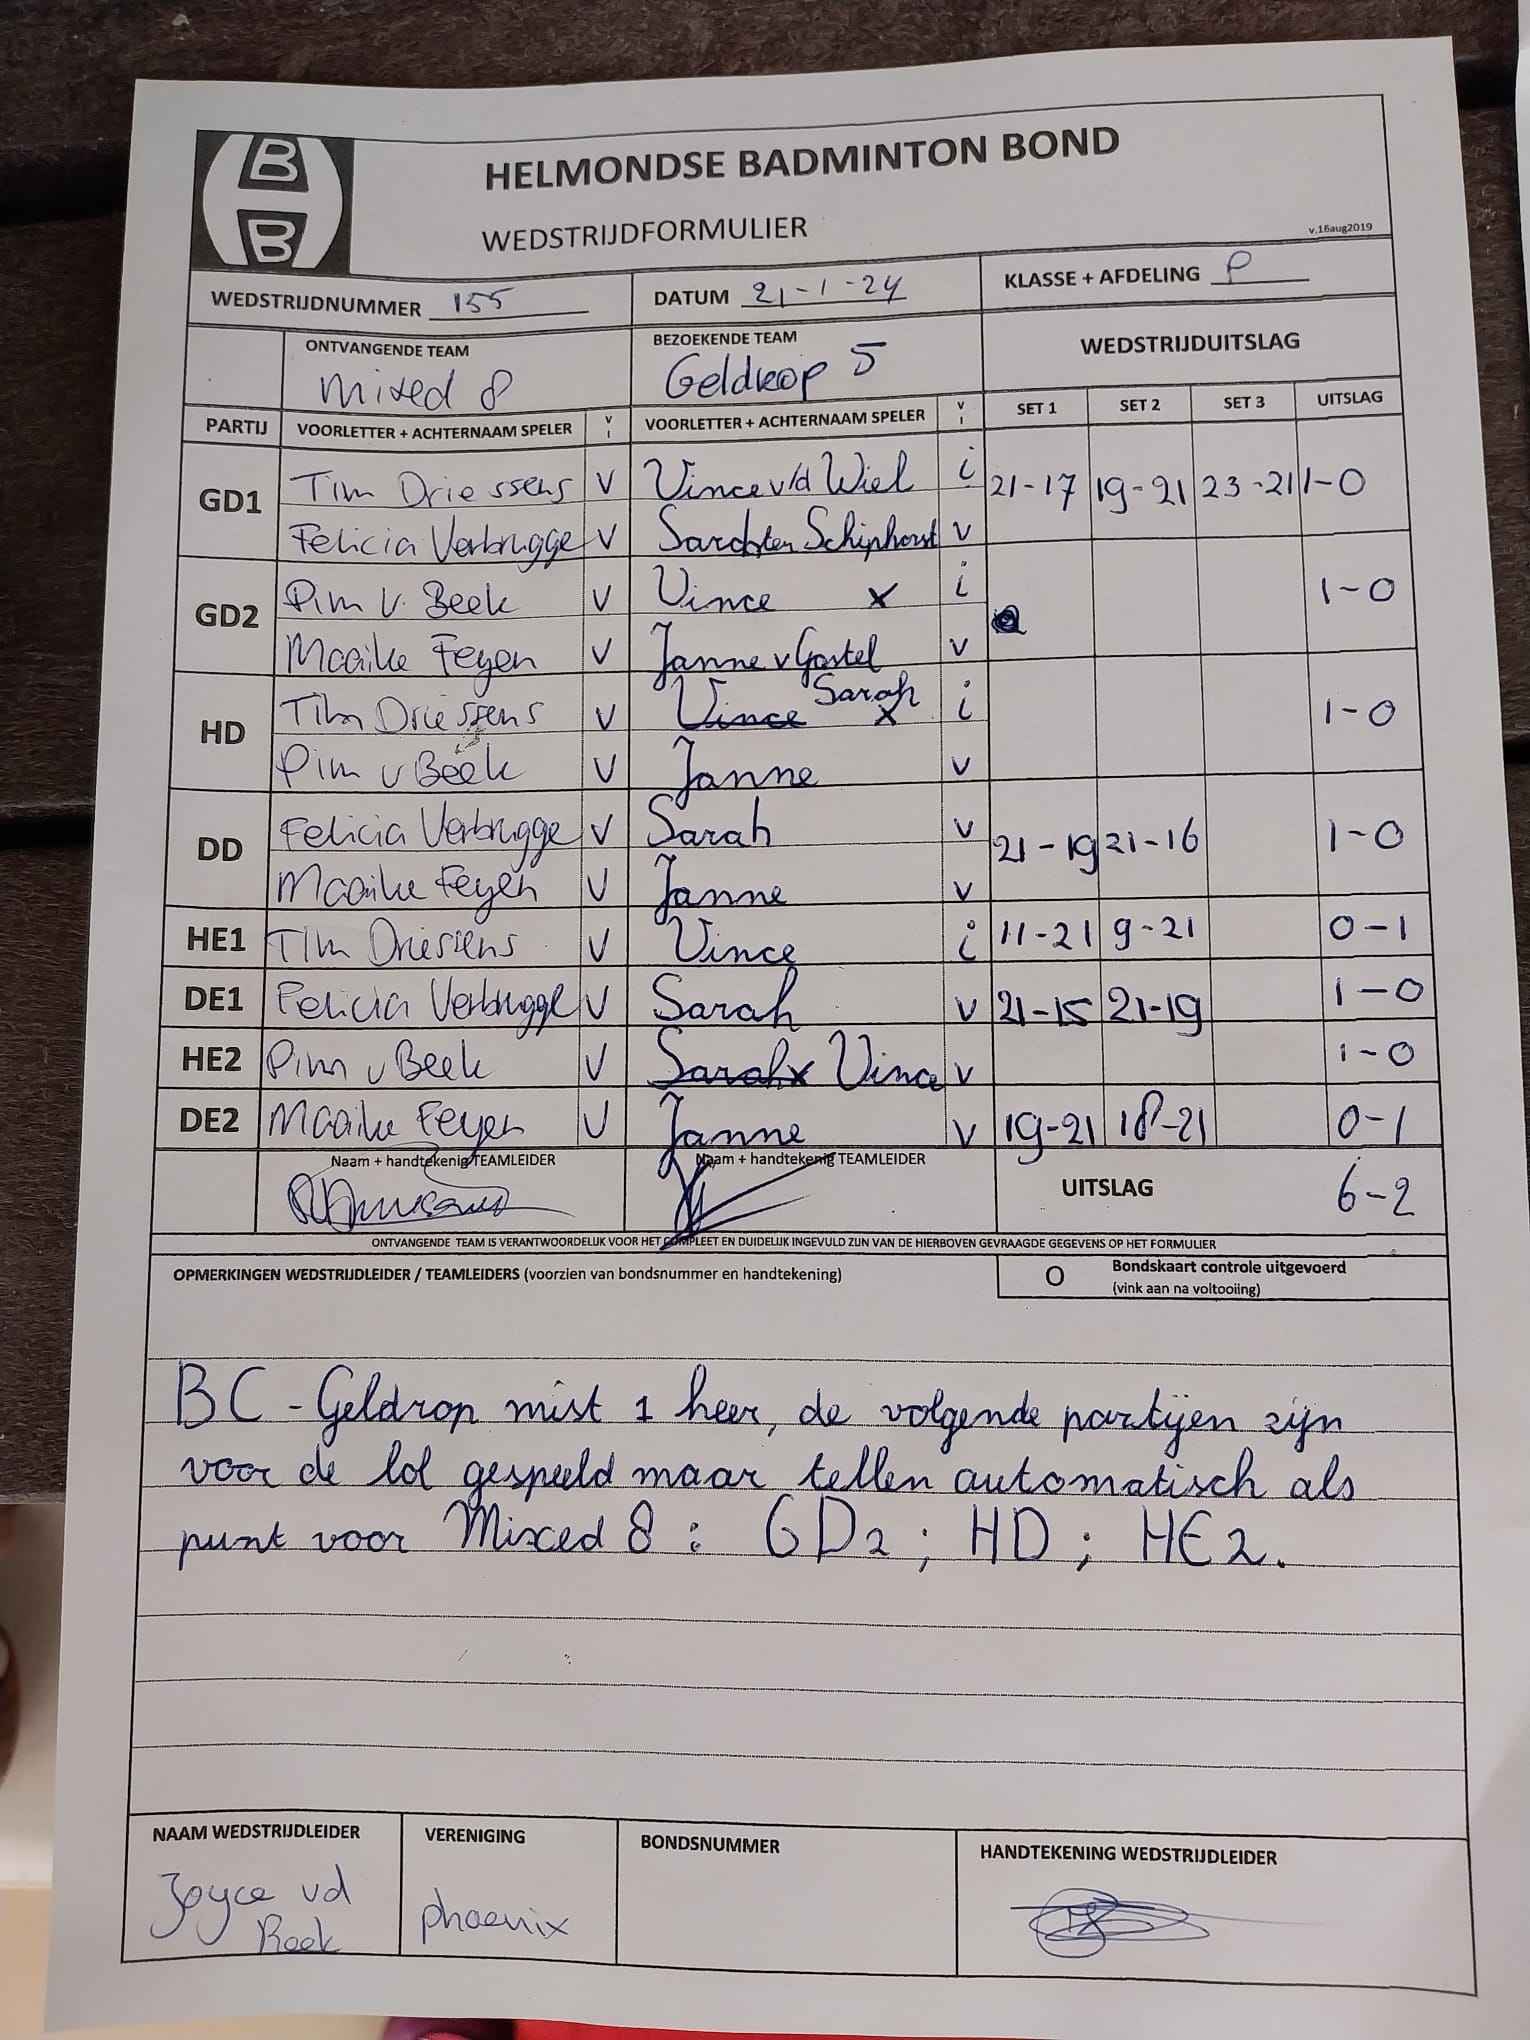 B
B
HELMONDSE BADMINTON BOND
WEDSTRIJDFORMULIER
v.16aug2019
WEDSTRIJDNUMMER 155 DATUM 21-1-24 KLASSE + AFDELING P
ONTVANGENDE TEAM BEZOEKENDE TEAM WEDSTRIJDUITSLAG
Mixed 8 Geldrop 5
PARTIJ VOORLETTER + ACHTERNAAM SPELER V I VOORLETTER + ACHTERNAAM SPELER V I SET 1 SET 2 SET 3 UITSLAG
GD1 Tim Driessens V Vince v/d Wiel i 21-17 19-21 23-21 1-0
Felicia Verbrugge V Schiphorst V
GD2 Pim v. Beek V Vince x i 1-0
Maaike Feyen V Janne v Gastel V
HD Tim Driessens V Vince Sarah x i 1-0
Pim v Beek V Janne V
DD Felicia Verbrugge V Sarah V 21-19 21-16 1-0
Maaike Feyen V Janne V
HE1 Tim Driessens V Vince i 11-21 9-21 0-1
DE1 Felicia Verbrugge V Sarah V 21-15 21-19 1-0
HE2 Pim v Beek V Sarah x Vince V 1-0
DE2 Maaike Feyen V Janne V 19-21 18-21 0-1
Naam + handtekenig TEAMLEIDER Naam + handtekenig TEAMLEIDER UITSLAG 6-2
ONTVANGENDE TEAM IS VERANTWOORDELIJK VOOR HET COMPLEET EN DUIDELIJK INGEVULD ZIJN VAN DE HIERBOVEN GEVRAAGDE GEGEVENS OP HET FORMULIER
OPMERKINGEN WEDSTRIJDLEIDER / TEAMLEIDERS (voorzien van bondsnummer en handtekening) O Bondskaart controle uitgevoerd
(vink aan na voltooiing)
BC-Geldrop mist 1 heer, de volgende partijen zijn
voor de lol gespeeld maar tellen automatisch als
punt voor Mixed 8 : GD2 ; HD ; HE2.
NAAM WEDSTRIJDLEIDER VERENIGING BONDSNUMMER HANDTEKENING WEDSTRIJDLEIDER
Joyce vd phoenix
Beek